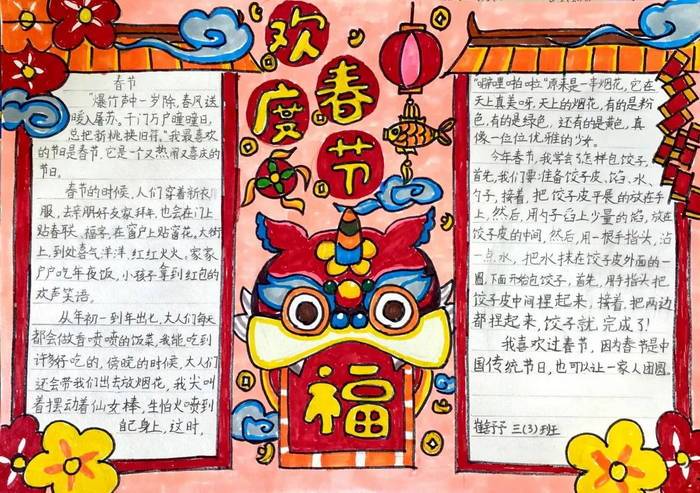 欢度
春节
春节
“爆竹声中一岁除，春风送
暖入屠苏。千门万户曈曈日，
总把新桃换旧符。”我最喜欢
的节日是春节，它是一个又热闹又喜庆的
节日。
春节的时候，人们穿着新衣
服，去亲朋好友家拜年，也会在门上
贴春联、福字，在窗户上贴窗花，大街
上，到处喜气洋洋，红红火火，家家
户户吃年夜饭，小孩子拿到红包的
欢声笑语。
从年初一到年出七，大人们每天
都会做香喷喷的饭菜，我能吃到
许多好吃的，傍晚的时候，大人们
还会带我们出去放烟花，我尖叫
着摆动着仙女棒，生怕火喷到
自己身上，这时，
福
“噼哩啪啦”原来是一串烟花，它在
天上真美呀，天上的烟花，有的是粉
色，有的是绿色，还有的是黄色，真
像一位位优雅的少女。
今年春节，我学会了怎样包饺子，
首先，我们要准备饺子皮、馅、水、
勺子，接着，把饺子皮平展的放在手
上，然后，用勺子舀上少量的馅，放在
饺子皮的中间，然后，用一根手指头，沾
一点水，把水抹在饺子皮外面的一
圈，下面开始包饺子，首先，用手指头把
饺子皮中间捏起来，接着，把两边
都捏起来，饺子就完成了！
我喜欢过春节，因为春节是中
国传统节日，也可以让一家人团圆。
三(3)班